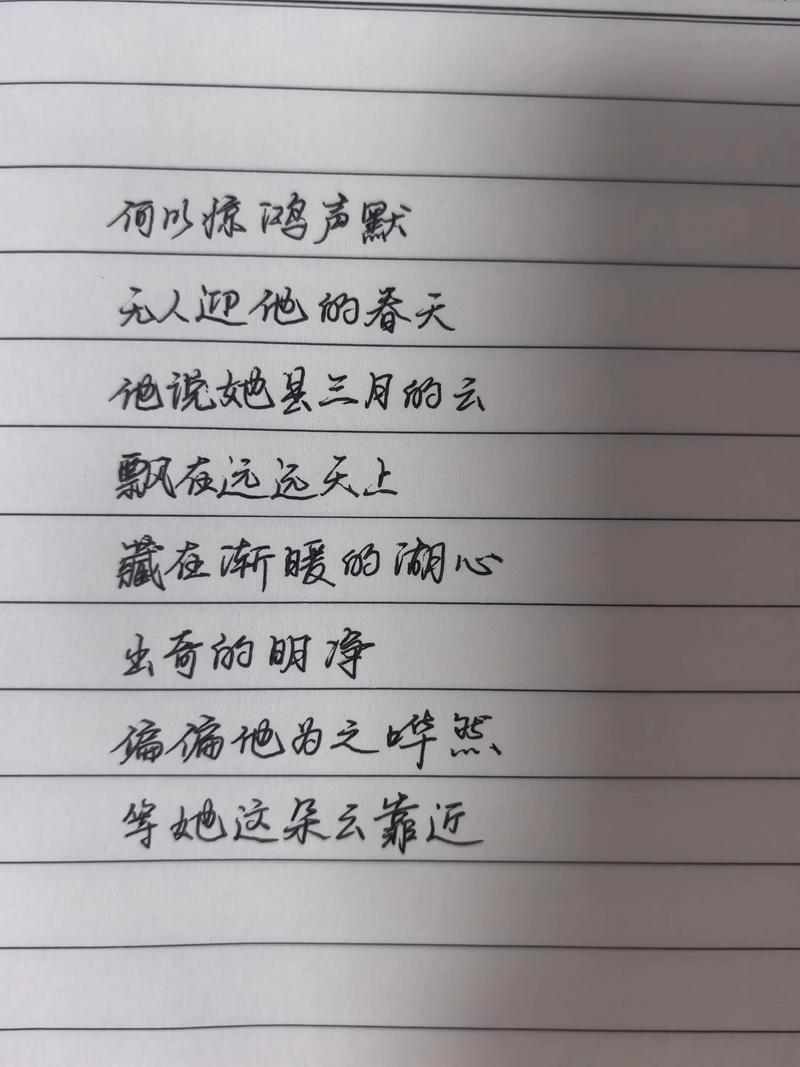 何以惊鸿声默
无人迎他的春天
他说她是三月的云
飘在远远天上
藏在渐暖的湖心
出奇的明净
偏偏他为之哗然
等她这朵云靠近